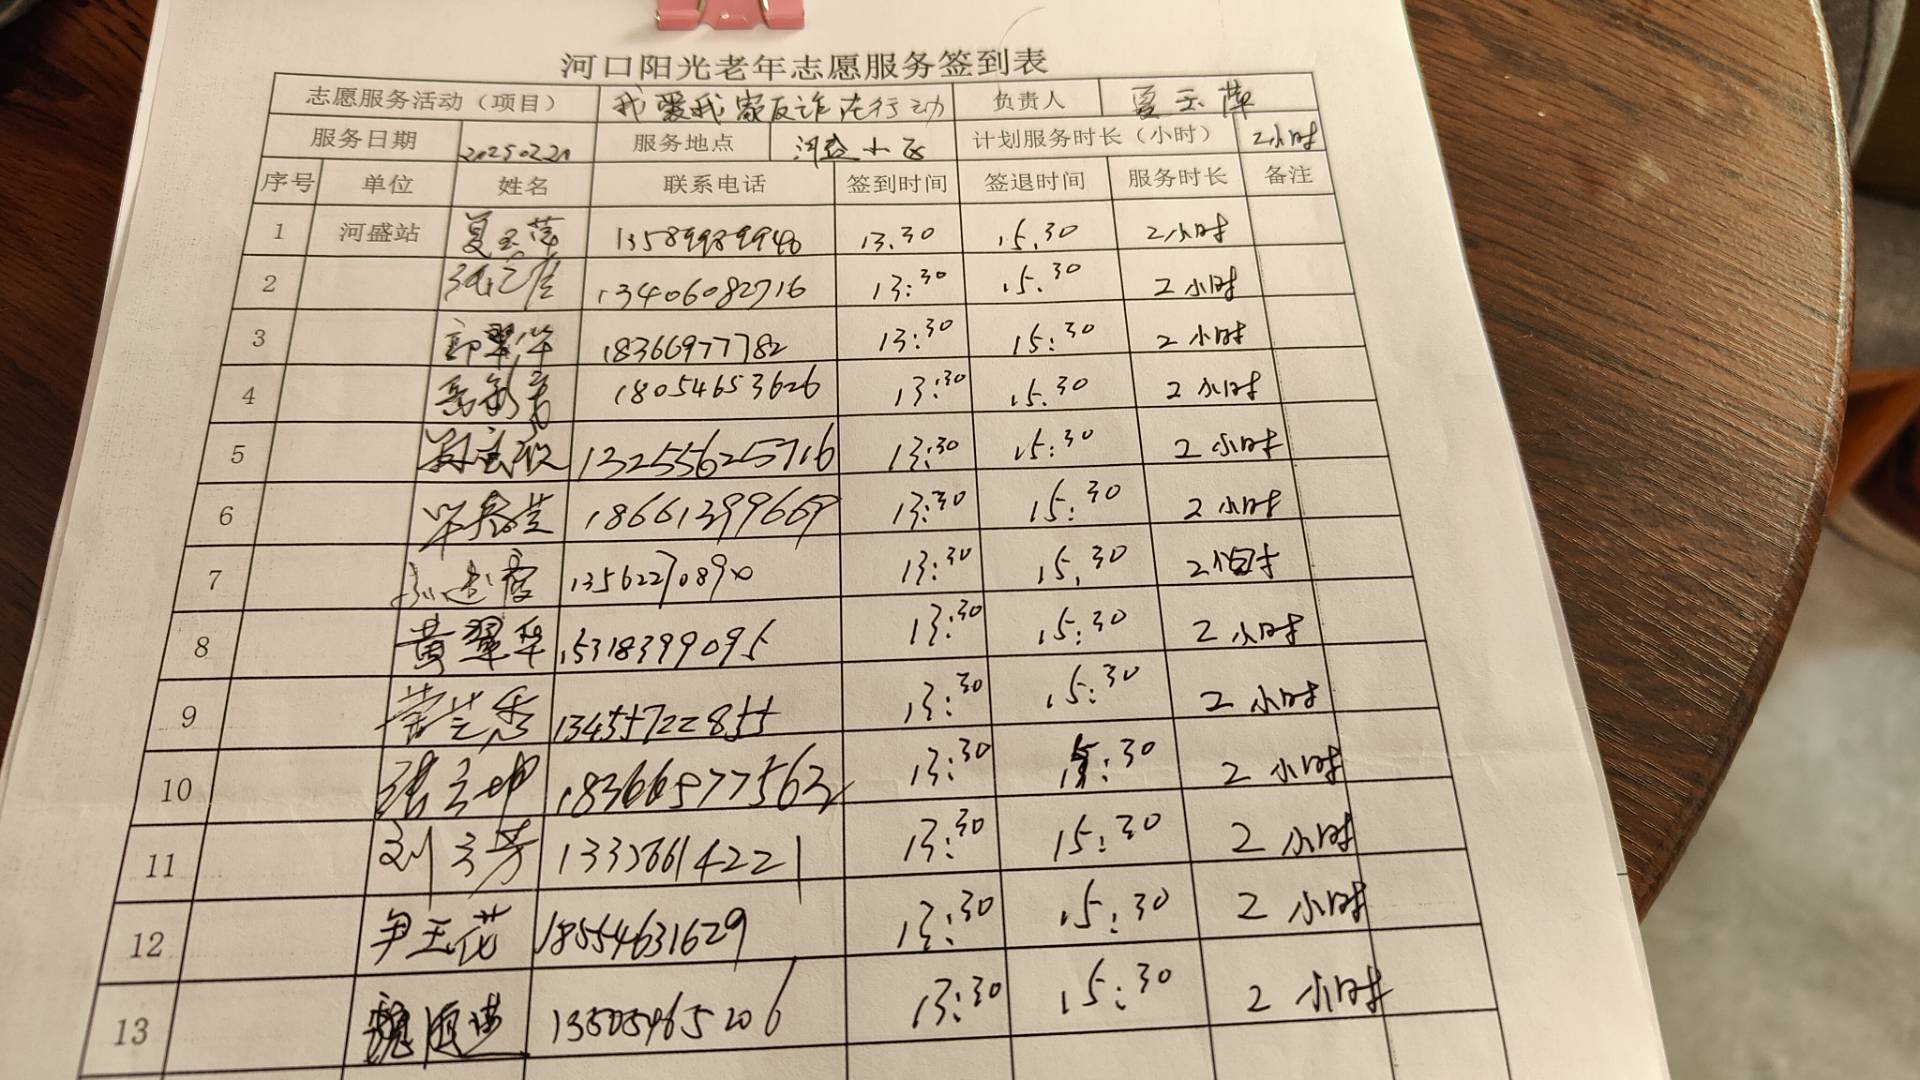 河口阳光老年志愿服务签到表
志愿服务活动（项目） 我爱我家反诈在行动 负责人 夏玉萍
服务日期 服务地点 河盛小区 计划服务时长（小时） 2小时
序号 单位 姓名 联系电话 签到时间 签退时间 服务时长 备注
1 河盛站 夏玉萍 13589989946 13.30 15.30 2小时
2 13406082716 13:30 15.30 2小时
3 郭翠华 18366977782 13:30 15:30 2小时
4 18054653626 13:30 15.30 2小时
5 13255625716 13:30 15:30 2小时
6 13:30 15:30 2小时
7 13:30 15.30
8 黄翠华 15318399095 13:30 15:30 2小时
9 常兰秀 13455722855 13:30 15:30 2小时
10 13:30 15:30 2小时
11 刘立芳 13:30 15:30 2小时
12 尹玉花 18554631629 13:30 15:30 2小时
13 13505465206 13:30 15:30 2小时